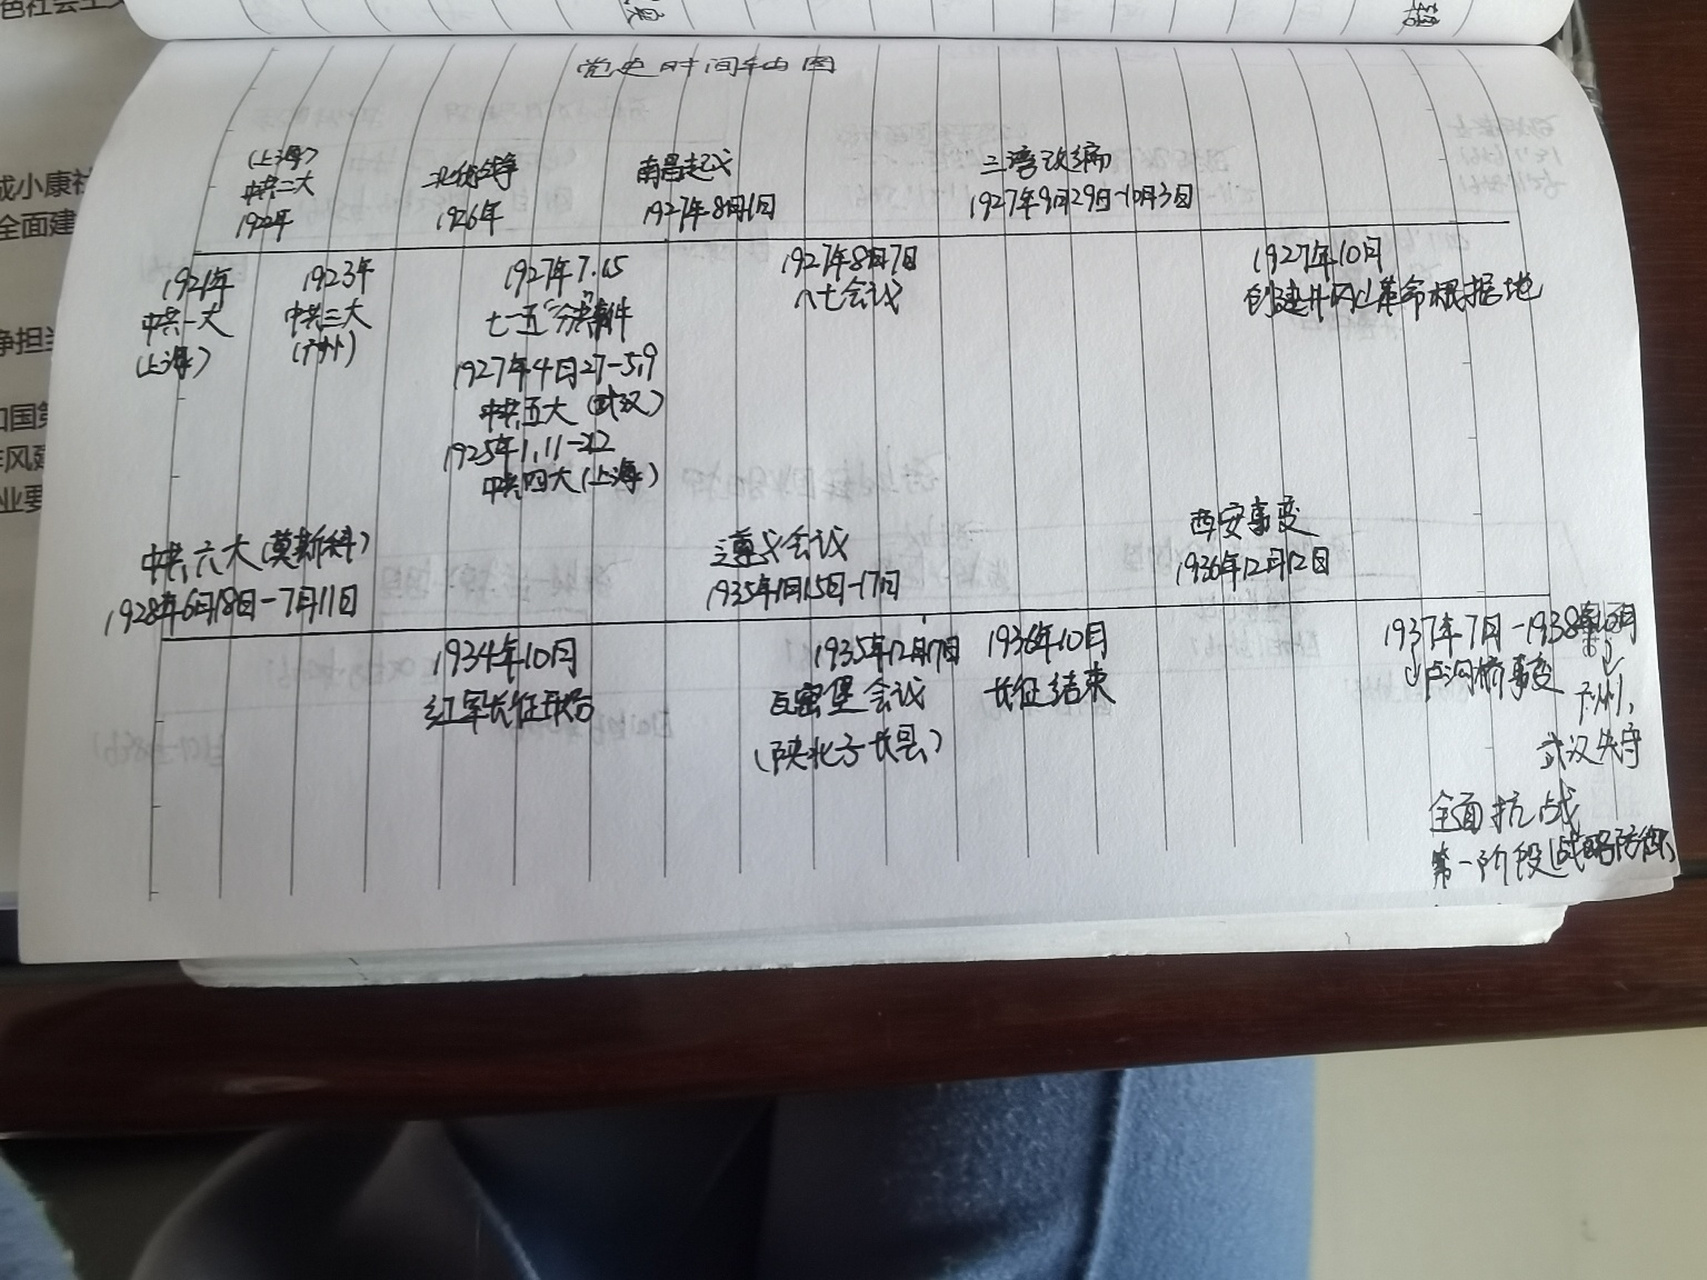 党史时间轴图
(上海)
中共二大
1922年
北伐战争
1926年
南昌起义
1927年8月1日
三湾改编
1927年9月29日-10月3日
1921年
中共一大
(上海)
1923年
中共三大
(广州)
1927年7.15
七一五“分共”事件
1927年4月27-5.9
中共五大(武汉)
1925年1.11-22
中共四大(上海)
1927年8月7日
八七会议
1927年10月
创建井冈山革命根据地
中共六大(莫斯科)
1928年6月18日-7月11日
遵义会议
1935年1月15日-17日
西安事变
1936年12月12日
1934年10月
红军长征开始
1935年12月17日
瓦窑堡会议
(陕北子长县)
1936年10月
长征结束
1937年7月-1938年10月
卢沟桥事变
广州,
武汉失守
全面抗战
第一阶段(战略防御)
成小康社
全面建
争担当
和国第
作风建
业要
色社会主义